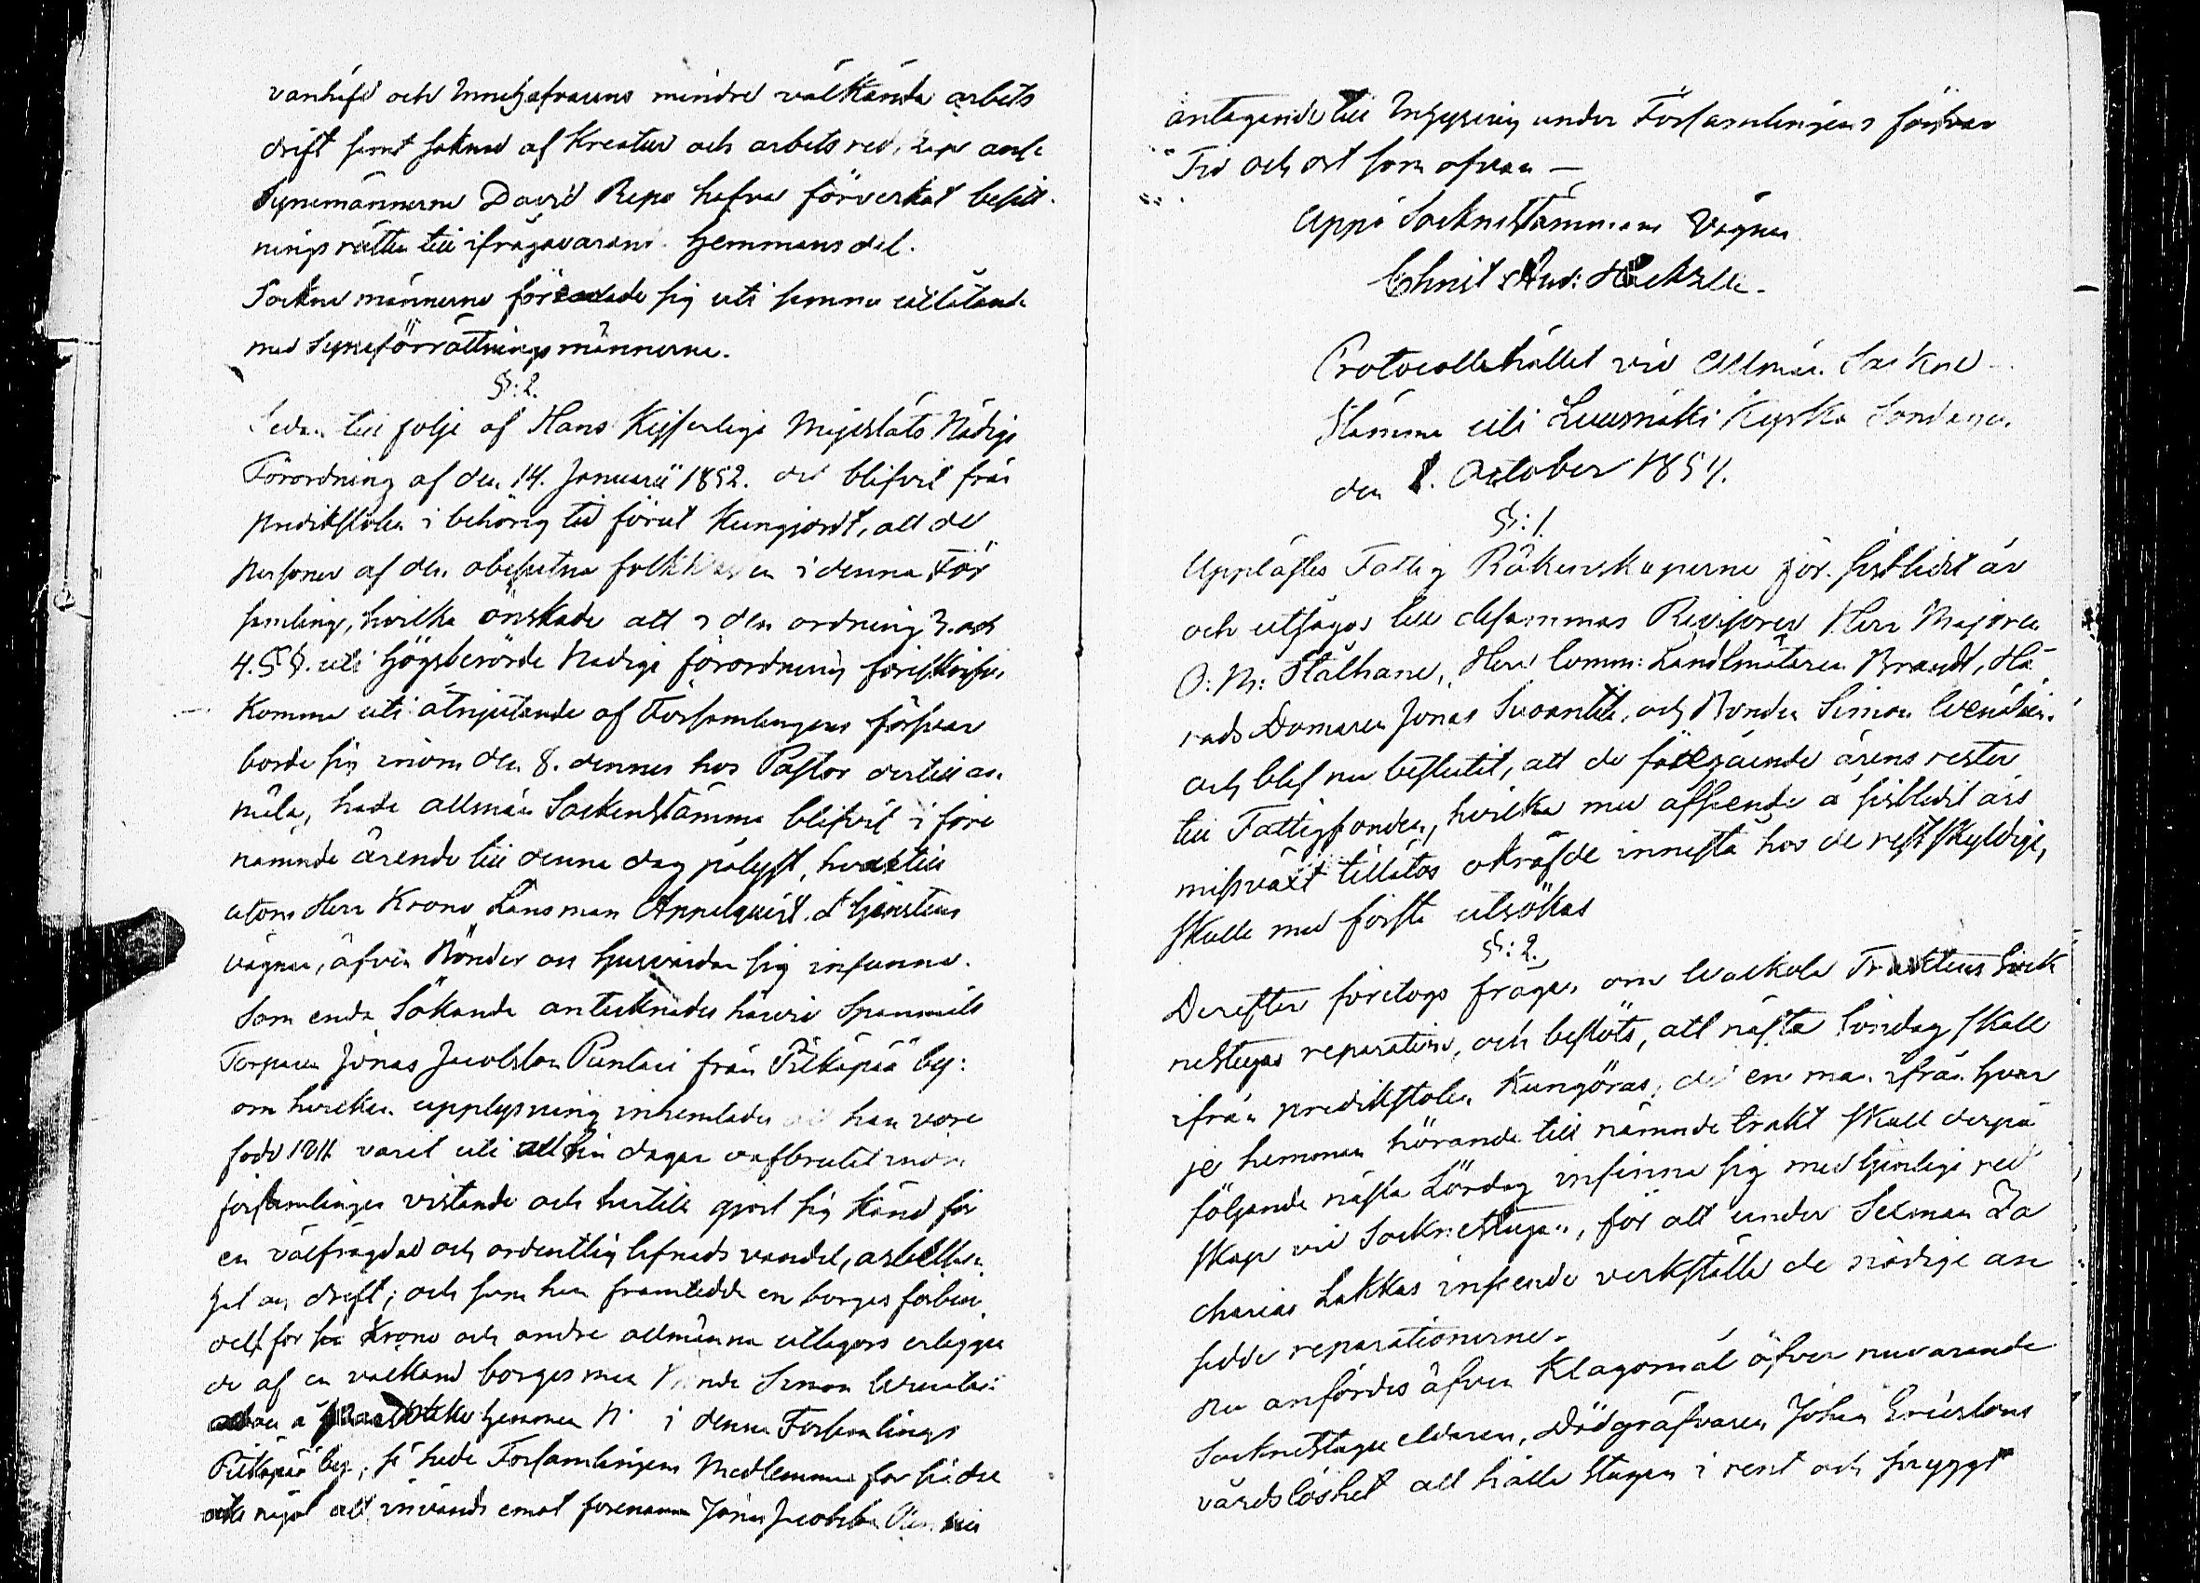 vanhäfd och Innehafvarens mindre välkända arbets
drift samt saknad af Kreatur och arbets redskap anse
Synemännerne David Repo hafva förverkat besitt-
nings rätten till ifrågavarande Hemmans del.
Sockne männerne förenade sig uti samma utlåtande
med Syneförrättnings männerne.
§: 2.
Sedan till följe af Hans Kejserliga Majestäts Nådiga
Förordning af den 14. Januarii 1852. det blifvit från
predikstolen i behörig tid förut Kungjordt, att de
personer af den obesutna folkklassen i denna För
samling, hvilka önskade att i den ordning 3. och
4. §§. uti högstberörde Nådiga förordning föreskrifves
Komma uti åtnjutande af Församlingens försvar
borde sig inom den 8. dennes hos Pastor dertill an
mäla, hade allmän Sockenstämma blifvit i före
nämnde ärende till denna dag pålyst, hvartill
utom Herr Krono Länsman Appelqvist å tjenstens
vägnar, äfven Bönder och husbönder sig infunno.
Som enda Sökande antecknades härvid Spanmåls
Torparen Jonas Jacobsson Puntari från Pitkäpää by:
om hvilken upplysning inhemtades att han vore
född 1811 varit uti all sin dagar oafbrutet inom
församlingen vistande och hertills gjort sig känd för
en välfrägdad och ordentlig lefnads vandel, arbetssam
het och drift; och som han framtedde en borgesförbin
delse för Krono och andre allmänna utlagors erläggan
de af en välkänd borgesman Bonden Simon
å hemman N: i denna Församlings
Pitkäpää by, så hade Församlingens Medlemmar för sin del
icke något att invända emot förenämnde Jonas Jacobsson Puntaris
antagande till Inhysning under Församlingens försvar
Tid och ort som ofvan —
Uppå Sockne Stämmans Vägnar
Christ: And: Hacksell.
Protocoll hållet vid Allmän Sockne
Stämma uti Luumäki Kyrka Söndagen
den 1. October 1854.
§: 1.
Upplästes Fattig Räkenskaperne för sistledit år
och utsågos till desammas Revisorer Herr Majoren
O: M: Stålhane, Herr Comm: Landtmätaren Brandt, Hä
rads Domaren Jonas Suoanttila, och Bonden Simon
och blef nu beslutit, att de föregående årens rester
till Fattigfonden, hvilka med afseende å sistledit års
missväxt tillåtos okräfde innestå hos de restskyldige,
skulle med första utsökas
§: 2.
Derefter företogs frågan om Wackola Tracktens Sock
nestugas reparation, och beslöts, att nästa Söndag skall
ifrån predikstolen Kungöras, det en man ifrån hvar
je hemman hörande till nämnde trakt skall derpå
följande nästa Lördag infinna sig med tjenliga red
skap vid Socknestugan, för att under Sexman Za
charias Lakkas inseende verkställa de nödiga an
sedde reparationerne.
Nu anfördes äfven Klagomål öfver nuvarande
Socknestugu eldaren, Dödgräfvaren Johan Ericssons
vårdslöshet att hålla Stugan i rent och snyggt